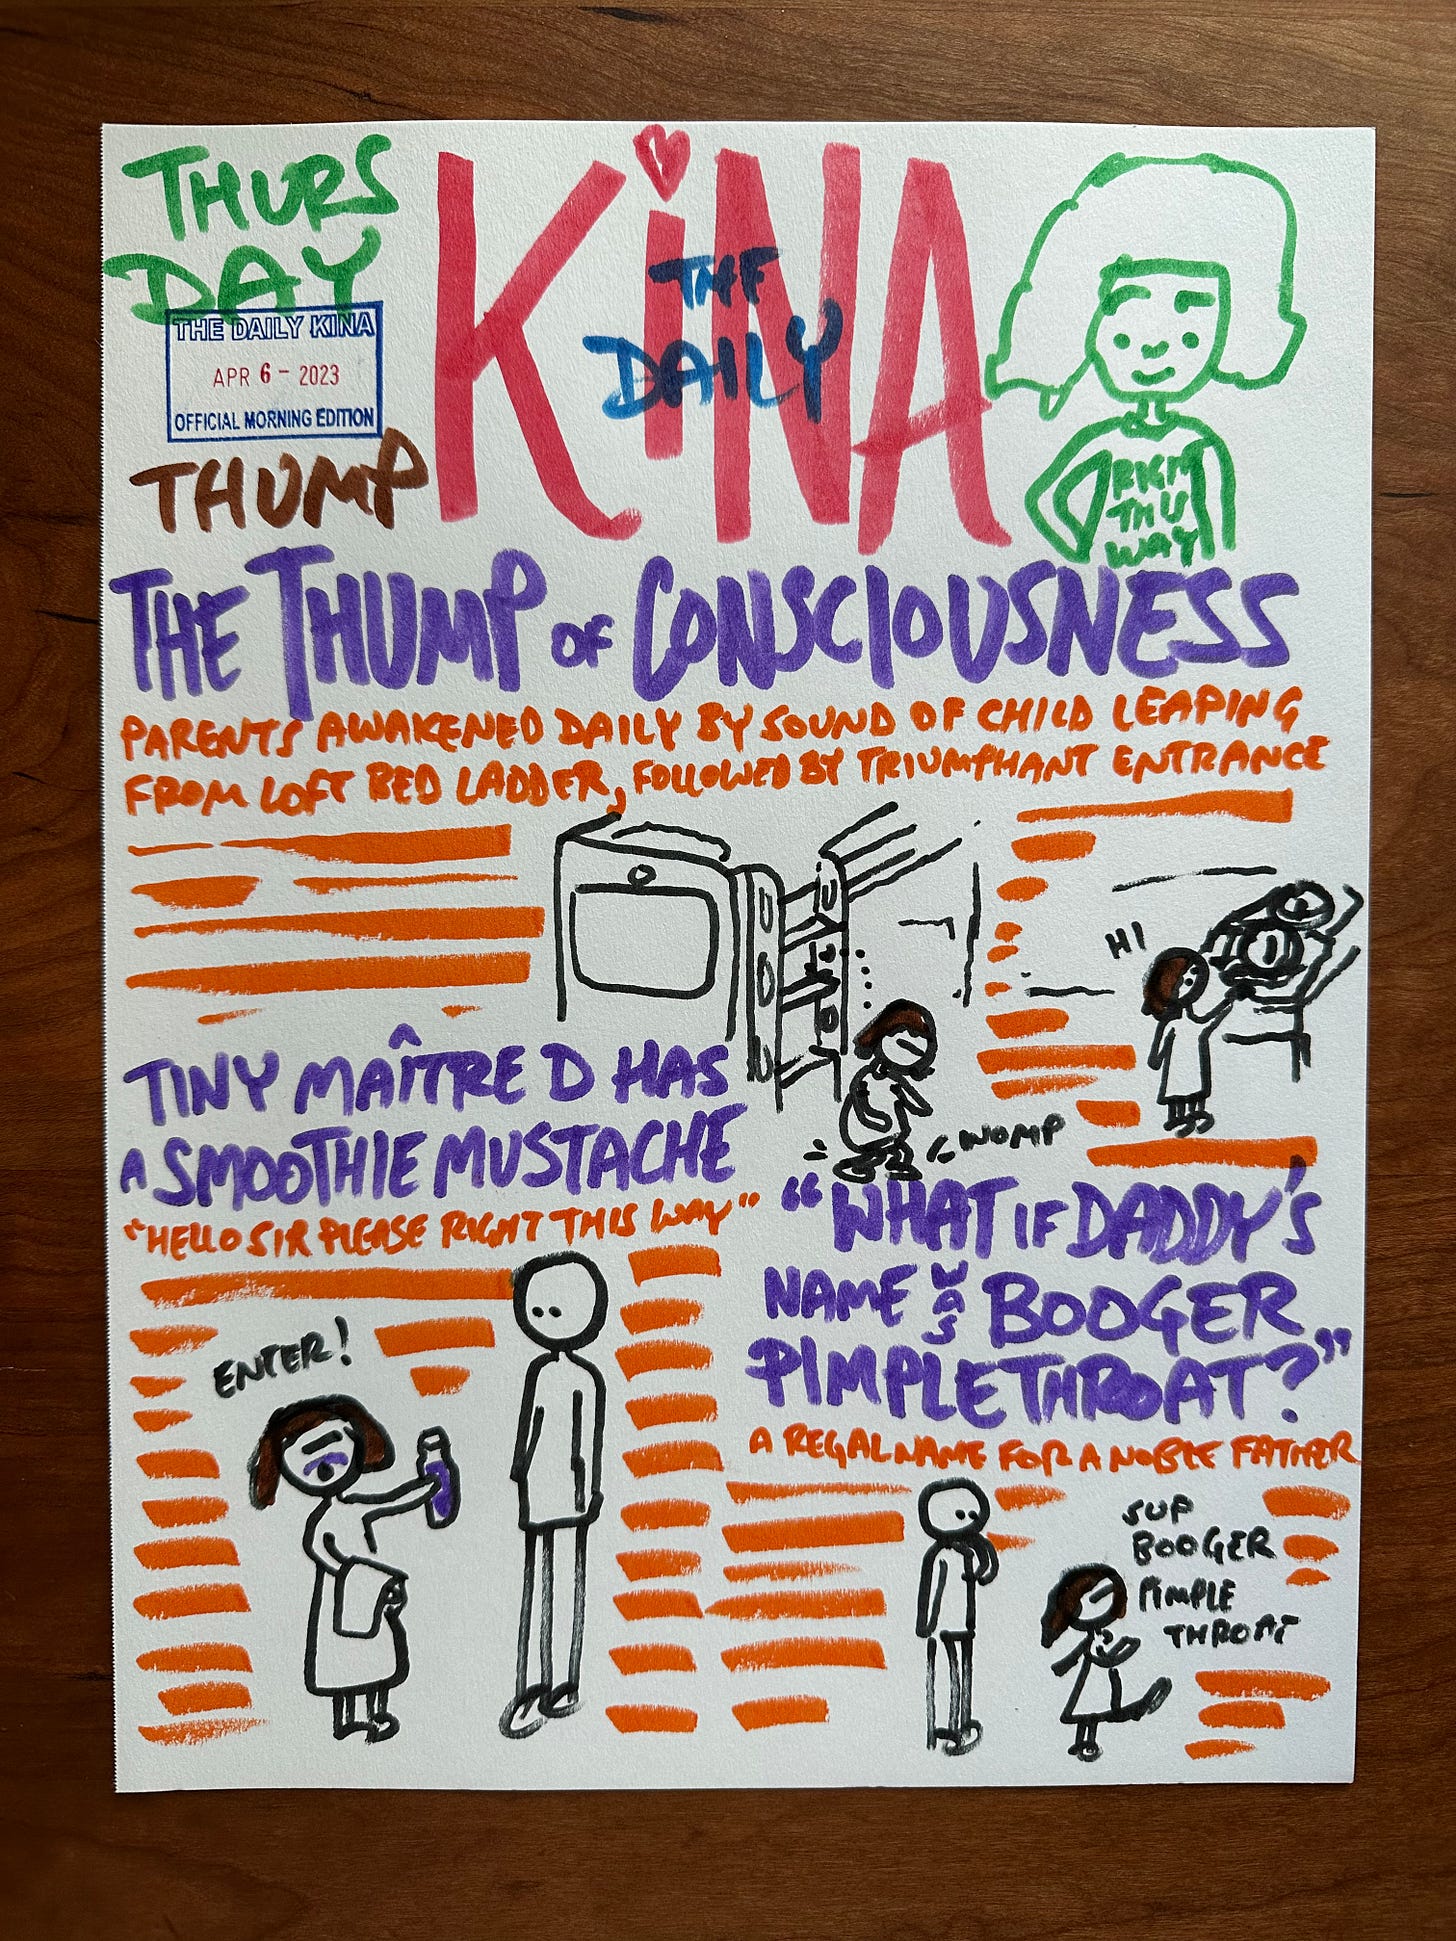 THURS
DAY
THE DAILY KINA
APR 6 - 2023
OFFICIAL MORNING EDITION
THUMP
KiNA
THE
DAILY
RIGHT
THIS
WAY
THE THUMP OF CONSCIOUSNESS
PARENTS AWAKENED DAILY BY SOUND OF CHILD LEAPING
FROM LOFT BED LADDER, FOLLOWED BY TRIUMPHANT ENTRANCE
HI
WOMP
TINY MAÎTRE D HAS
A SMOOTHIE MUSTACHE
"HELLO SIR PLEASE RIGHT THIS WAY"
ENTER!
"WHAT IF DADDY'S
NAME WAS BOOGER
PIMPLETHROAT?"
A REGAL NAME FOR A NOBLE FATHER
SUP
BOOGER
PIMPLE
THROAT